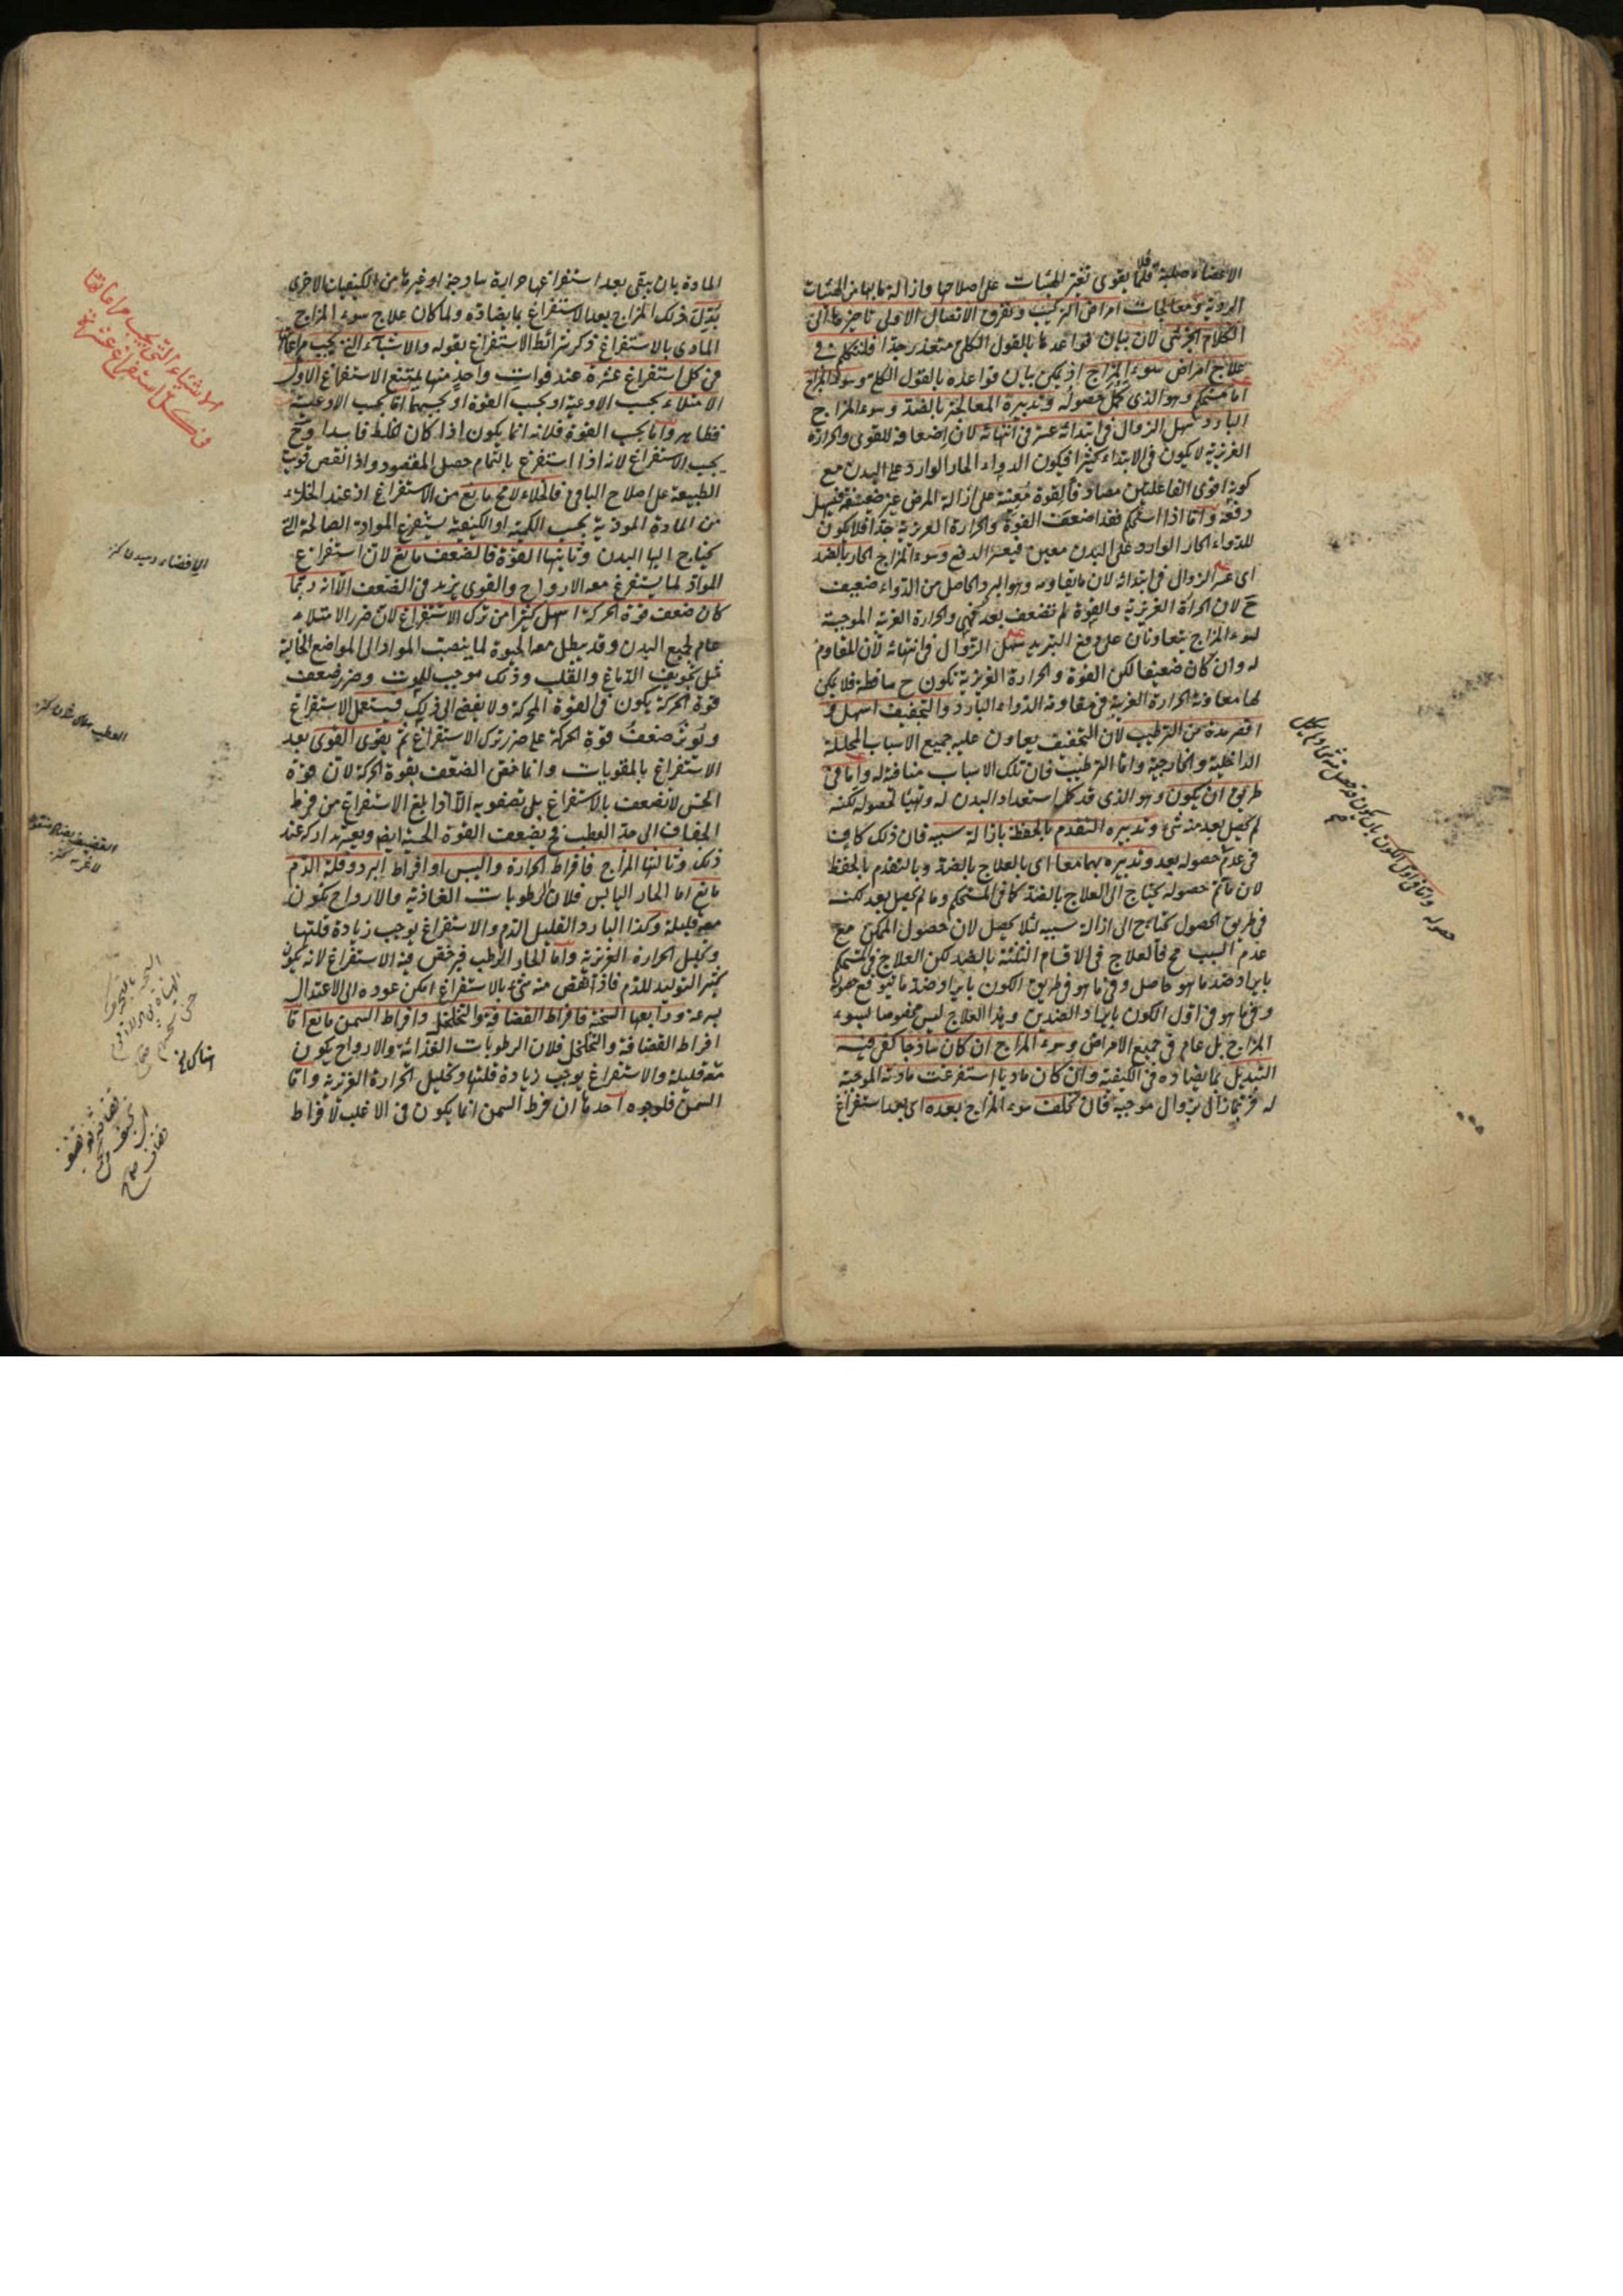 الاعضاء صلبة قلما يقوى تغير الهيئات على اصلاحها وازالة ما بها من الهيئات
الردية ومعالجات امراض التركيب وتفرق الاتصال الاولى تاخيرها الى
الكلام الجزئى لان بيان قواعدها بالقول الكلى متعذر جدا فلنتكلم فى
علاج امراض سوء المزاج اذ يمكن بيان قواعده بالقول الكلى وسوء المزاج
اما مستحكم وهو الذى كمل حصوله وتدبيره المعالجة بالضد وسوء المزاج
البارد سهل الزوال فى ابتدائه عسر فى انتهائه لان اضعافه للقوى والحرارة
الغريزية لا يكون فى الابتداء كثيرا فيكون الدواء الحار الوارد على البدن مع
كونه اقوى الفاعلين مصادفا لقوة معينة على ازالة المرض غير ضعيفة فيسهل
دفعه واما اذا استحكم فقد اضعف القوة والحرارة الغريزية جدا فلا يكون
للدواء الحار الوارد على البدن معين فيعسر الدفع وسوء المزاج الحار بالضد
اى عسر الزوال فى ابتدائه لان ما يقاومه وهو البرد الحاصل من الدواء ضعيف
ح لان الحرارة الغريزية والقوة لم تضعف بعد فهى والحرارة الغريبة الموجبة
لسوء المزاج يتعاونان على دفع التبريد سهل الزوال فى انتهائه لان المقاوم
له وان كان ضعيفا لكن القوة والحرارة الغريزية تكون ح ساقطة فلا يمكن
لها معاونة الحرارة الغريبة فى مقاومة الدواء البارد والتجفيف اسهل و
اقصر مدة من الترطيب لان التجفيف يعاون عليه جميع الاسباب المحللة
الداخلية والخارجية واما الترطيب فان تلك الاسباب منافية له واما فى
طريق ان يكون وهو الذى قد كمل استعداد البدن له وتهيا لحصوله لكنه
لم يحصل بعد منه شئ وتدبيره التقدم بالحفظ بازالة سببه فان ذلك كاف
فى عدم حصوله بعد وتدبيره بهما معا اى بالعلاج بالضد وبالتقدم بالحفظ
لان ما تم حصوله يحتاج الى العلاج بالضد كما فى المستحكم وما لم يحصل بعد لكنه
فى طريق الحصول يحتاج الى ازالة سببه لئلا يحصل لان حصول الممكن مع
عدم السبب مح فالعلاج فى الاقسام الثلثة بالضد لكن العلاج فى المستحكم
بايراد ضد ما هو حاصل وفى ما هو فى طريق الكون بايراد ضد ما يتوقع حصوله
وفى ما هو فى اول الكون بايراد الضدين وهذا العلاج ليس مخصوصا بسوء
المزاج بل عام فى جميع الامراض وسوء المزاج ان كان ساذجا كفى فيه
التبديل بما يضاده فى الكيفية وان كان ماديا استفرغت مادته الموجبة
له فربما زال بزوال موجبه فان تخلف سوء المزاج بعده اى بعد استفراغ
حصوله واما فى اول الكون بان يكون قد حصل منه شئ ولم يكمل
المادة بان يبقى بعد استفراغها حرارة ساذجة او غيرها من الكيفيات الاخرى
بدل ذلك المزاج بعد الاستفراغ بما يضاده ولما كان علاج سوء المزاج
المادى بالاستفراغ ذكر شرائط الاستفراغ بقوله والاشياء التى يجب مراعاتها
فى كل استفراغ عشرة عند فوات واحد منها يمتنع الاستفراغ الاول
الامتلاء بحسب الاوعية او بحسب القوة او بحسبهما اما بحسب الاوعية
فظاهر واما بحسب القوة فلانه انما يكون اذا كان الخلط فاسدا وح
يجب الاستفراغ لانه اذا استفرغ بالتمام حصل المقصود واذا نقص قويت
الطبيعة على اصلاح الباقى فالخلاء لا مح مانع من الاستفراغ اذ عند الخلاء
من المادة الموذية بحسب الكمية او الكيفية يستفرغ المواد الصالحة التى
يحتاج اليها البدن وثانيها القوة فالضعف مانع لان استفراغ
المواد لما يستفرغ معه الارواح والقوى يزيد فى الضعف الا انه ربما
كان ضعف قوة الحركة اسهل كثيرا من ترك الاستفراغ لان ضرر الامتلاء
عام لجميع البدن وقد يبطل معه الحيوة لما ينصب المواد الى المواضع الخالية
مثل تجويف الدماغ والقلب وذلك موجب للموت وضرر ضعف
قوة الحركة يكون فى القوة المحركة ولا يفضى الى ذلك فيستعمل الاستفراغ
ويوثر ضعف قوة الحركة على ضرر ترك الاستفراغ ثم يقوى القوى بعد
الاستفراغ بالمقويات وانما خص الضعف بقوة الحركة لان قوة
الحس لا تضعف بالاستفراغ بل تصفو به الا اذا بلغ الاستفراغ من فرط
الجفاف الى حد العطب فح يضعف القوة الحسية ايض ويعسر تداركه عند
ذلك وثالثها المزاج فافراط الحرارة واليبس او افراط البرد وقلة الدم
مانع اما الحار اليابس فلان الرطوبات الغاذية والارواح تكون
معه قليلة وكذا البارد القليل الدم والاستفراغ يوجب زيادة قلتها
وتحليل الحرارة الغريزية واما الحار الرطب فيرخص فيه الاستفراغ لانه يكون
كثير التوليد للدم فاذا نقص منه شئ بالاستفراغ امكن عوده الى الاعتدال
بسرعة ورابعها السحنة فافراط القضافة والتخلخل وافراط السمن مانع اما
افراط القضافة والتخلخل فلان الرطوبات الغذائية والارواح يكون
معه قليلة والاستفراغ يوجب زيادة قلتها وتحليل الحرارة الغريزية واما
السمن فلوجوه احدها ان فرط السمن انما يكون فى الاغلب لافراط
الاشياء التى يجب مراعاتها
فى كل استفراغ عشرة
الافضاء رسيدن كنز